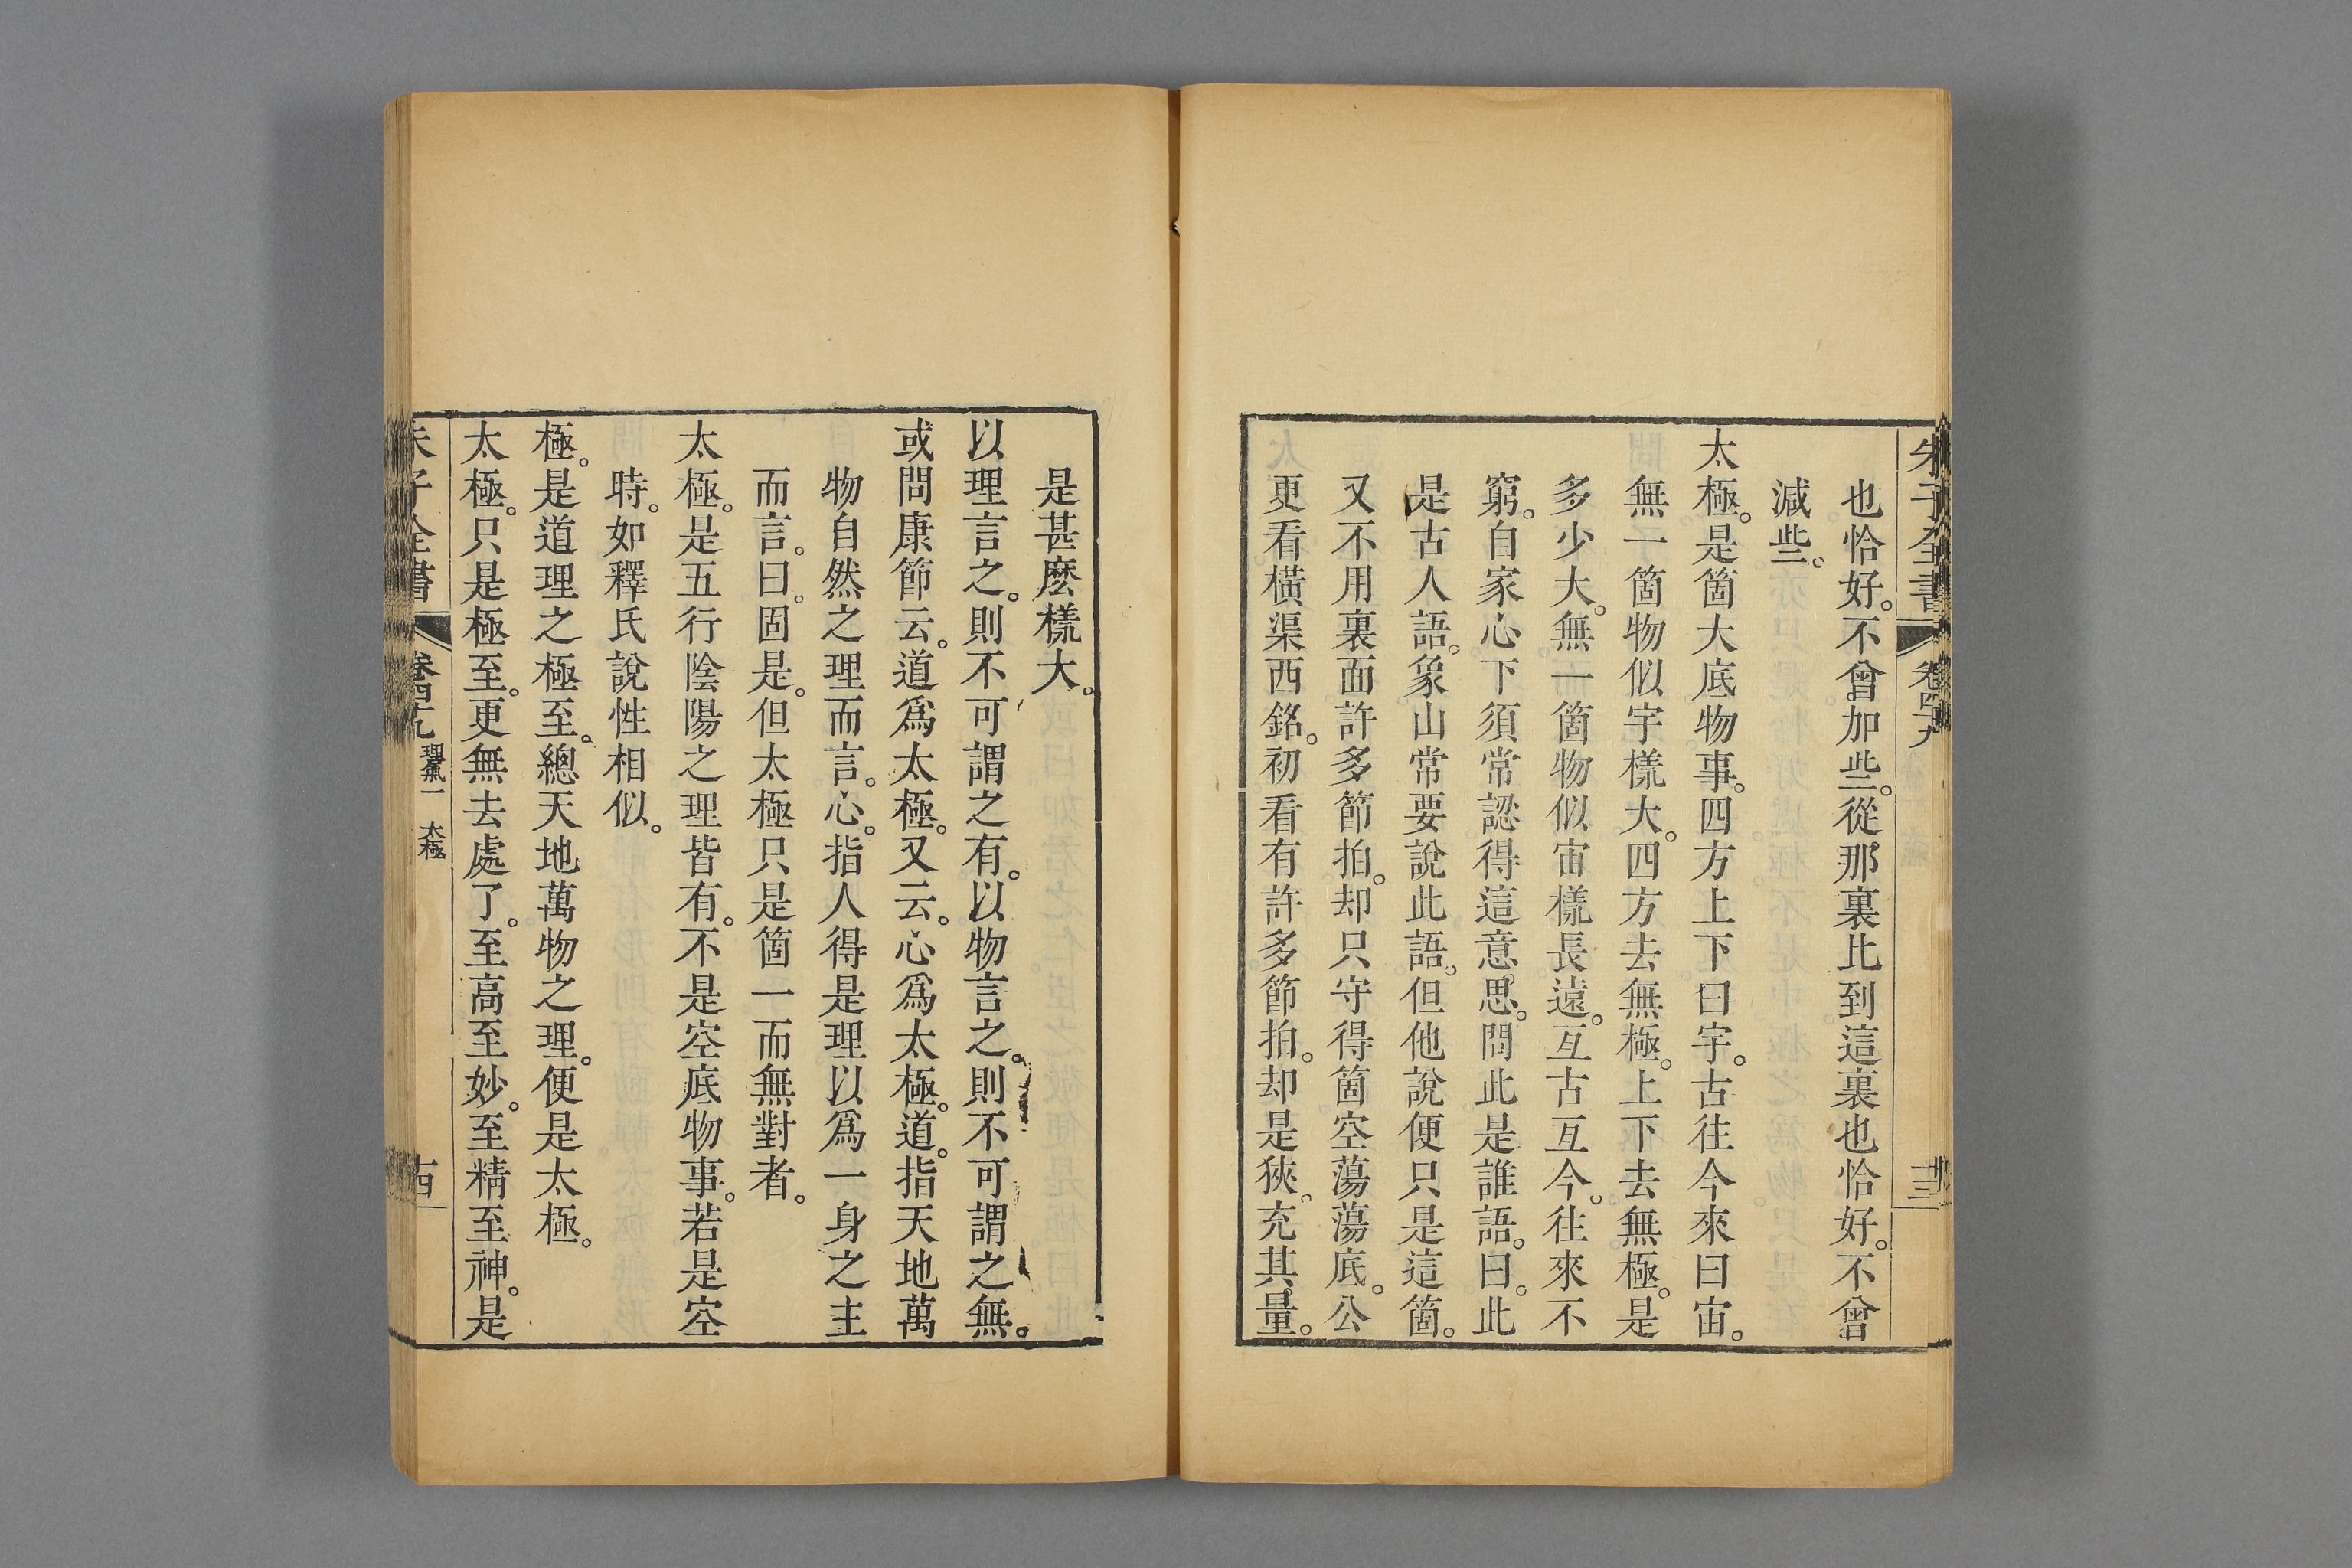 朱子全書 卷四十九 十三
也恰好。不曾加些。從那裏比到這裏也恰好。不曾
減些。
太極。是箇大底物事。四方上下曰宇。古往今來曰宙。
無一箇物似宇㨾大。四方去無極。上下去無極。是
多少大。無一箇物似宙㨾長遠。亙古亙今。往來不
窮。自家心下須常認得這意思。問此是誰語。曰。此
是古人語。象山常要說此語。但他說便只是這箇。
又不用裏面許多節拍。却只守得箇空蕩蕩底。公
更看橫渠西銘。初看有許多節拍。却是狹。充其量。
是甚麽㨾大。
以理言之。則不可謂之有。以物言之。則不可謂之無。
或問康節云。道爲太極。又云。心爲太極。道。指天地萬
物自然之理而言。心。指人得是理以爲一身之主
而言。曰。固是。但太極只是箇一而無對者。
太極。是五行陰陽之理皆有。不是空底物事。若是空
時。如釋氏說性相似。
極。是道理之極至。總天地萬物之理。便是太極。
太極。只是極至。更無去處了。至高至妙。至精至神。是
朱子全書 卷四十九 理氣一 太極 十四